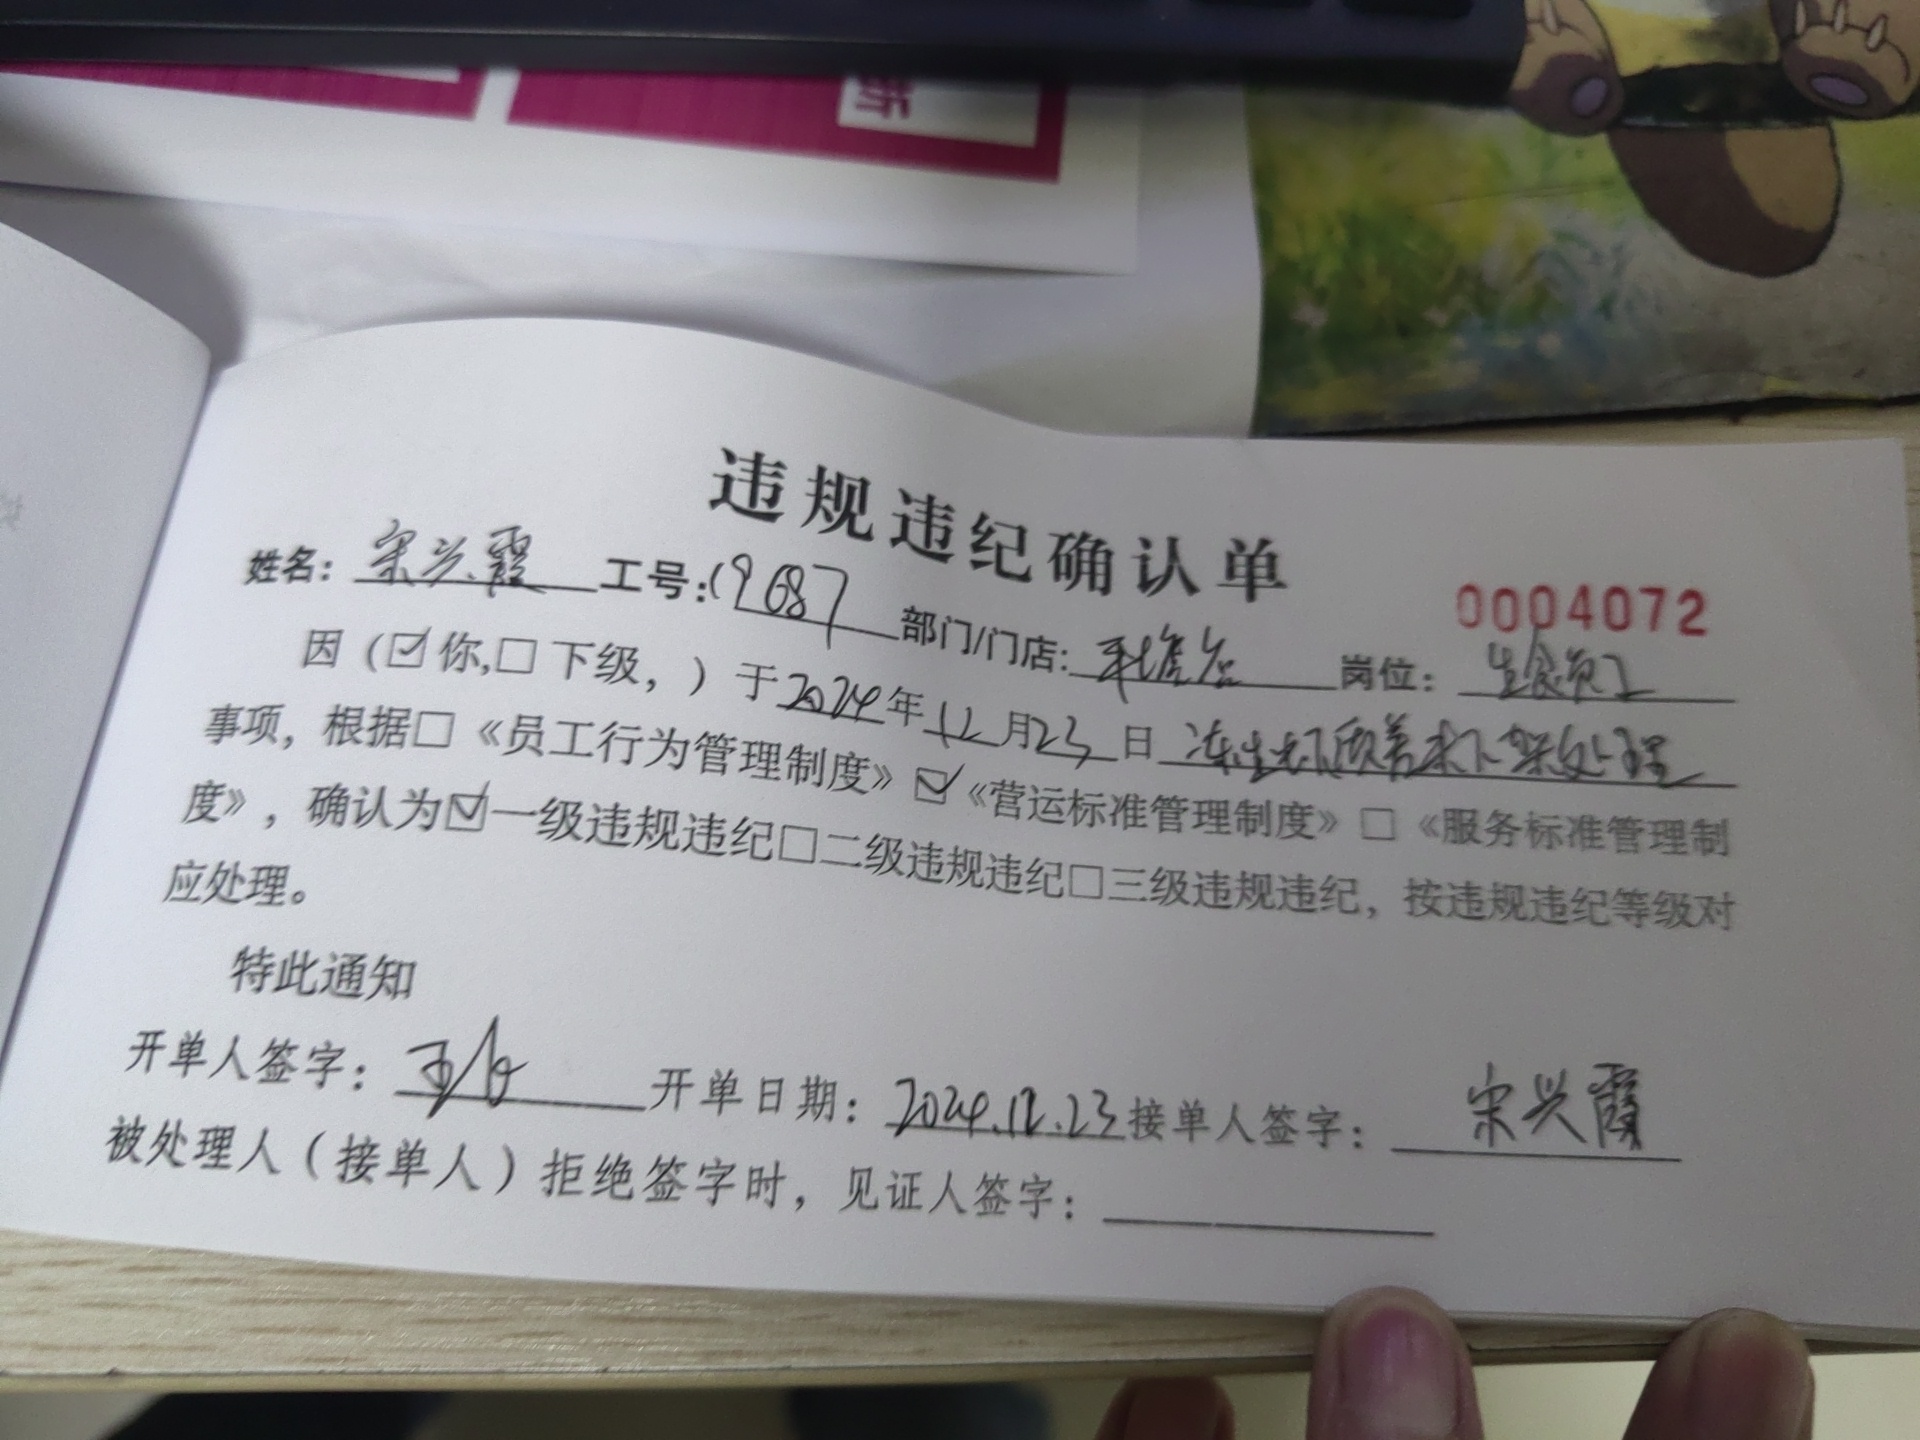 新
违规违纪确认单
0004072
姓名：宋兴霞 工号：19687 部门/门店： 岗位：生食员工
因（☑你，□下级，）于2024年12月23日 未下架处理
事项，根据□《员工行为管理制度》☑《营运标准管理制度》□《服务标准管理制
度》，确认为☑一级违规违纪□二级违规违纪□三级违规违纪，按违规违纪等级对
应处理。
特此通知
开单人签字： 开单日期：2024.12.23 接单人签字：宋兴霞
被处理人（接单人）拒绝签字时，见证人签字：